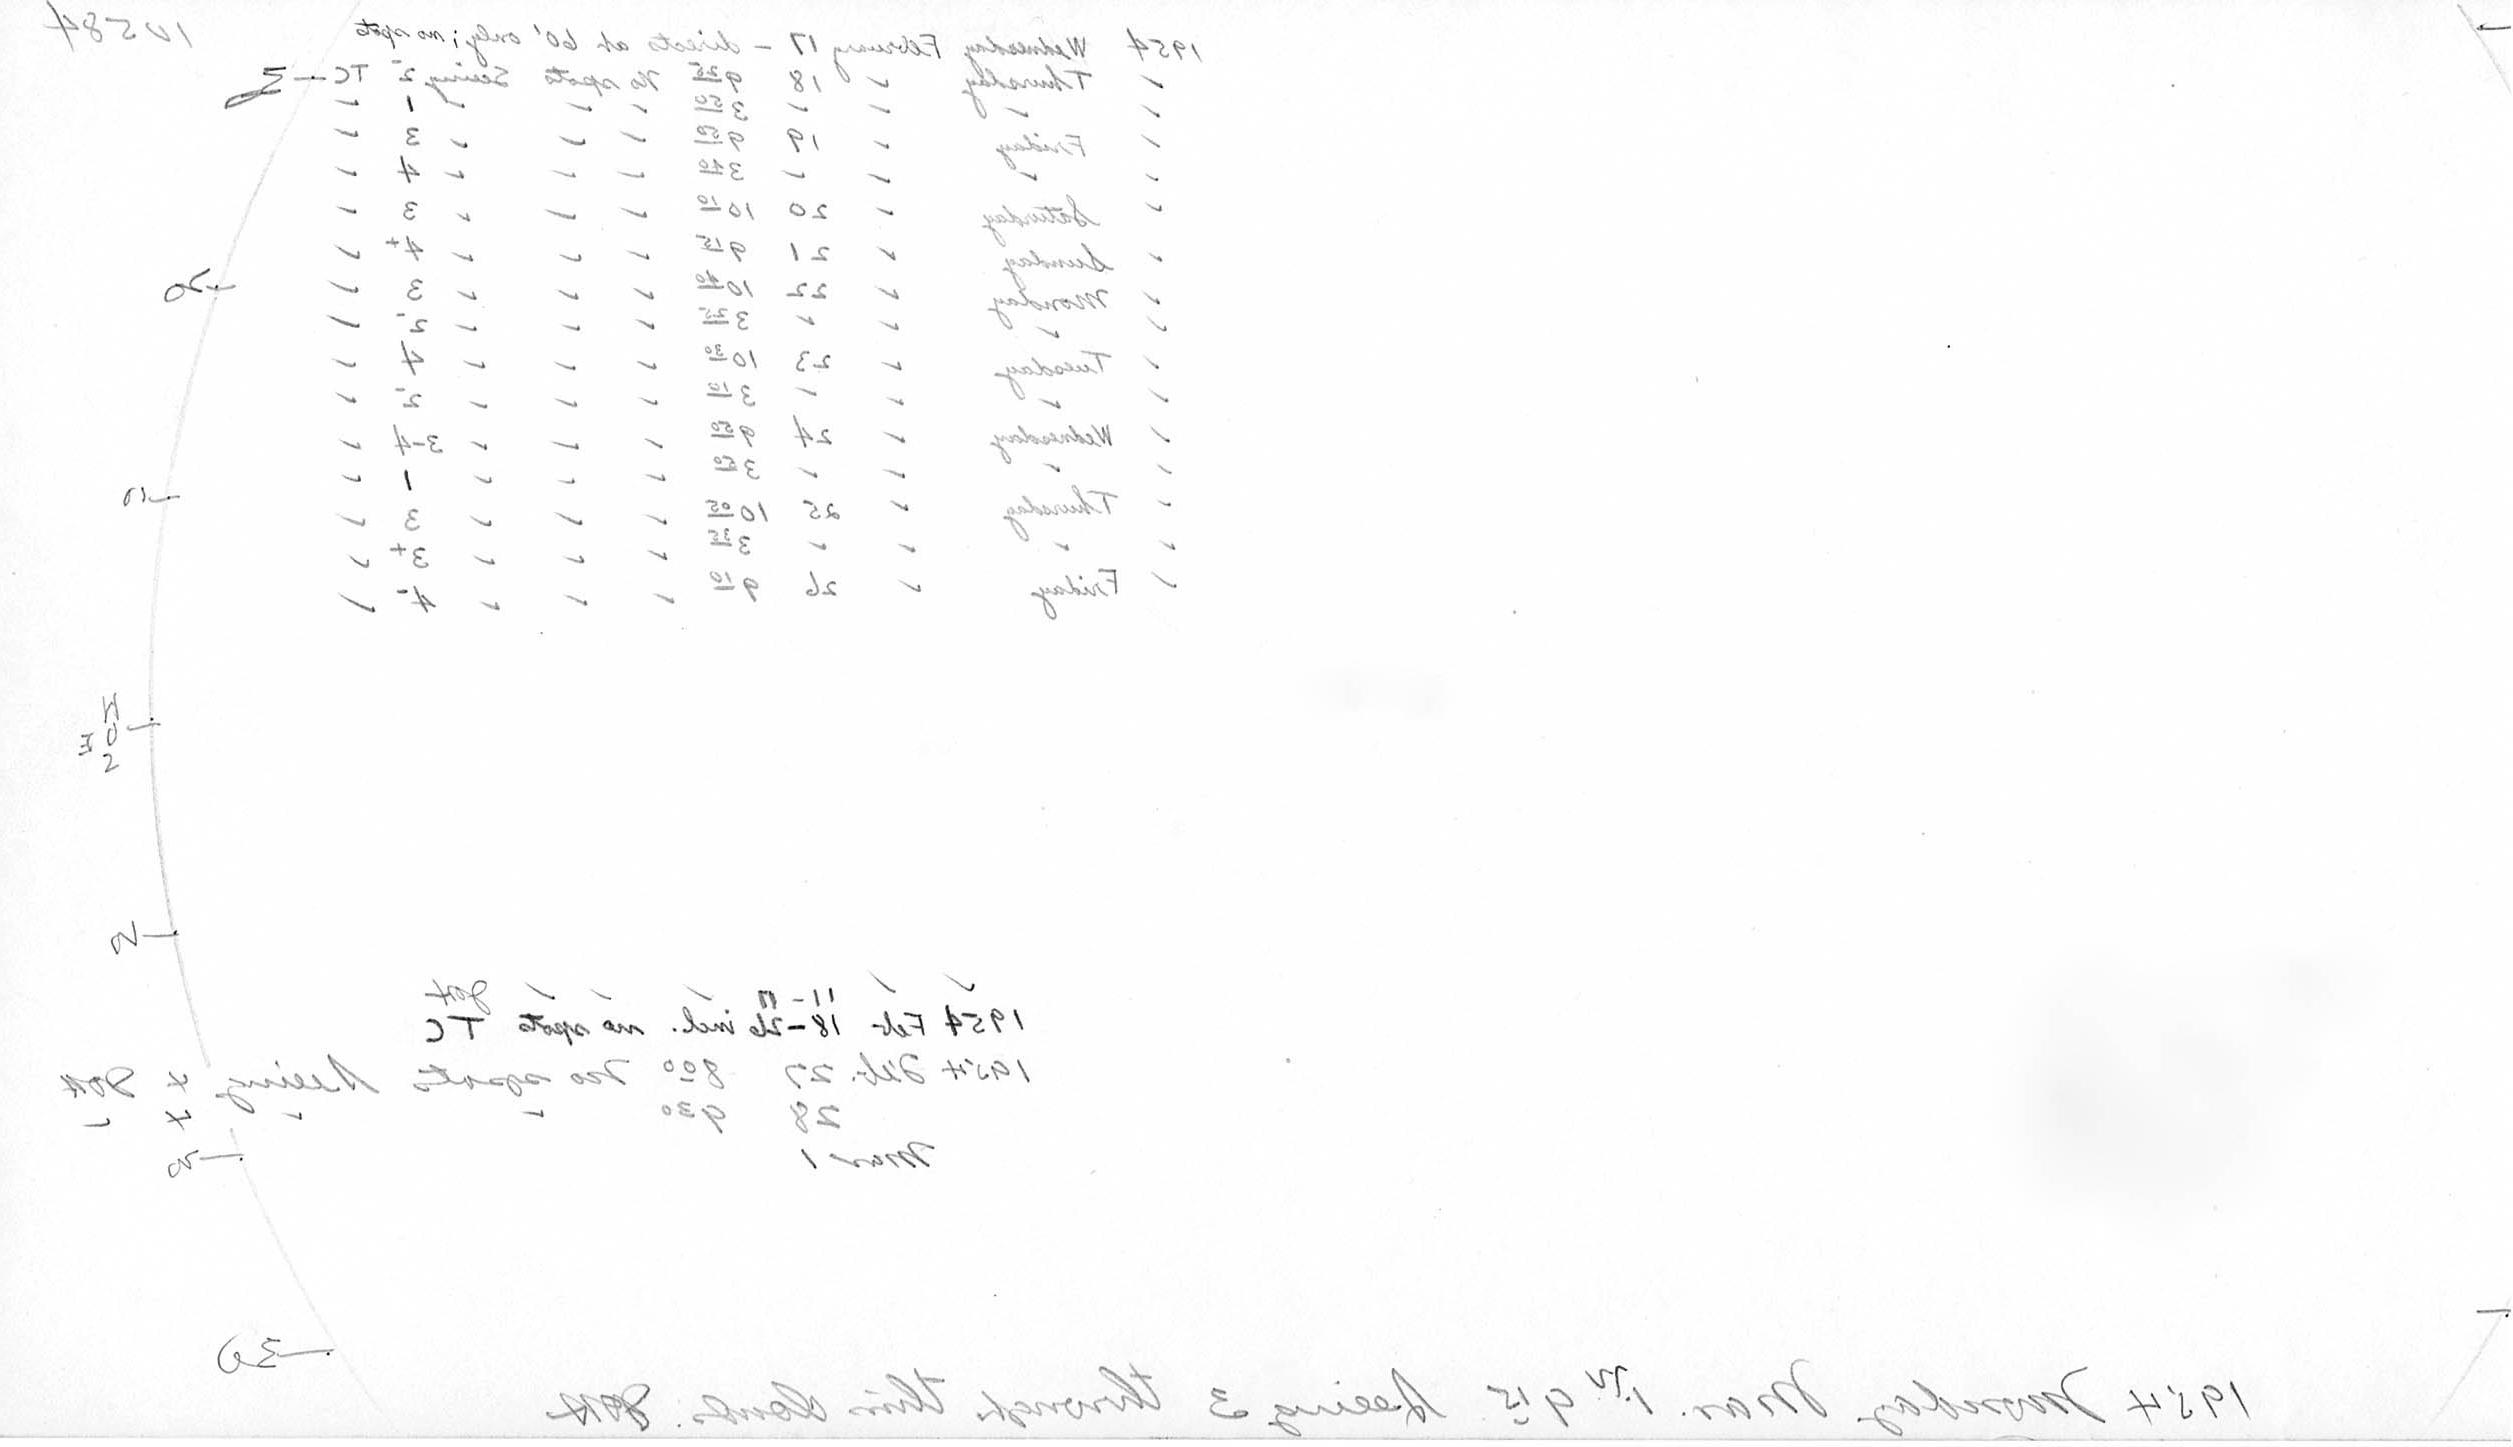 10584
1954 Wednesday February 17 – directs at 60' only; no spots
" Thursday " 18 9 25 No spots Seeing 2 TC
" " " " 3 50 " " " 1 "
" Friday " 19 9 50 " " " 3 "
" " " " 3 40 " " " 4 "
" Saturday " 20 10 10 " " " 3 "
" Sunday " 21 9 15 " " " 4+ "
" Monday " 22 10 40 " " " 3 "
" " " " 3 25 " " " 2 "
" Tuesday " 23 10 30 " " " 4 "
" " " " 3 10 " " " 2 "
" Wednesday " 24 9 50 " " " 3-4 "
" " " " 3 50 " " " 1 "
" Thursday " 25 10 05 " " " 3 "
" " " " 3 35 " " " 3+ "
" Friday " 26 9 10 " " " 4- "
" " 11-17 " " "
1954 Feb 18-26 incl. no spots TC
1954 Feb. 27 8 00 No spots Seeing
28 9 30 " "
Mar 1
1954 Monday Mar. 1. 9 15 Seeing 3 through thin clouds.